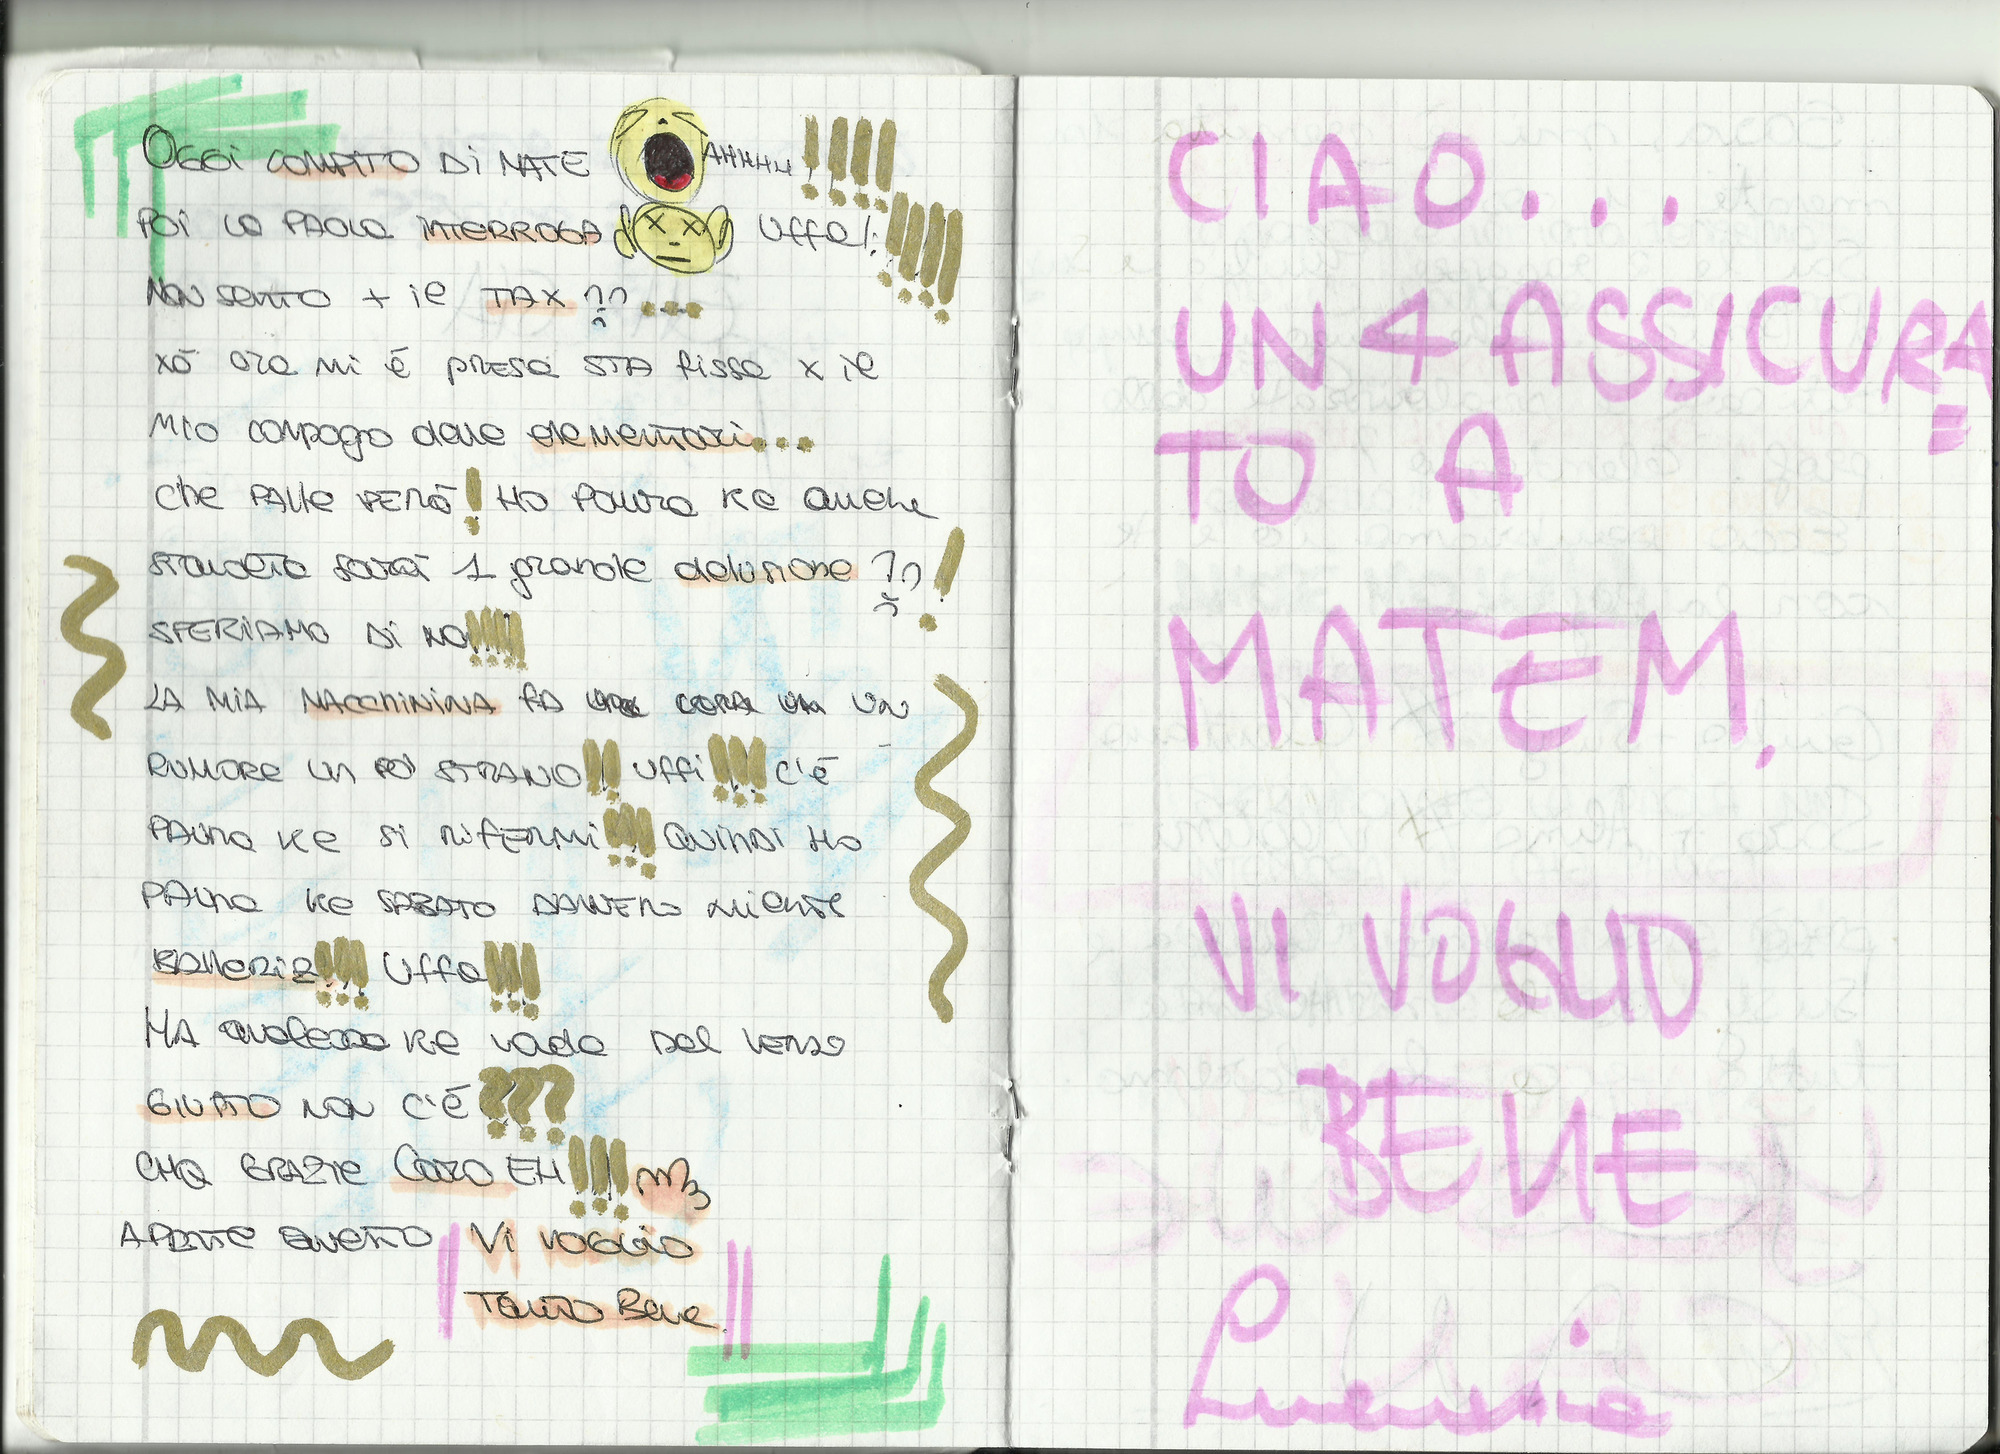 Oggi compito di mate AHHHH!!!!!
poi la Paola interroga Uffa!:!!!!
Non sento + il TAX ??...
xò ora mi è presa sta fissa x il
mio compago delle elementari...
che palle però! Ho paura ke anche
stavolta sarà 1 grande delusione ??!
SPERIAMO DI NO!!!!
LA MIA MACCHININA FA un
RUMORE un po' STRANO!! uffi!!! c'è
PAURA ke si rifermi!!! Quindi ho
PAURA ke SABATO DAVVERO niente
BALLERIA!!! Uffa!!!
MA qualcosa ke vada del verso
GIUSTO non c'è???
CHQ GRAZIE Caro EH!!!
A PARTE QUESTO Vi voglio
Tanto Bene.
CIAO...
UN 4 ASSICURA=
TO A
MATEM.
VI VOGLIO
BENE